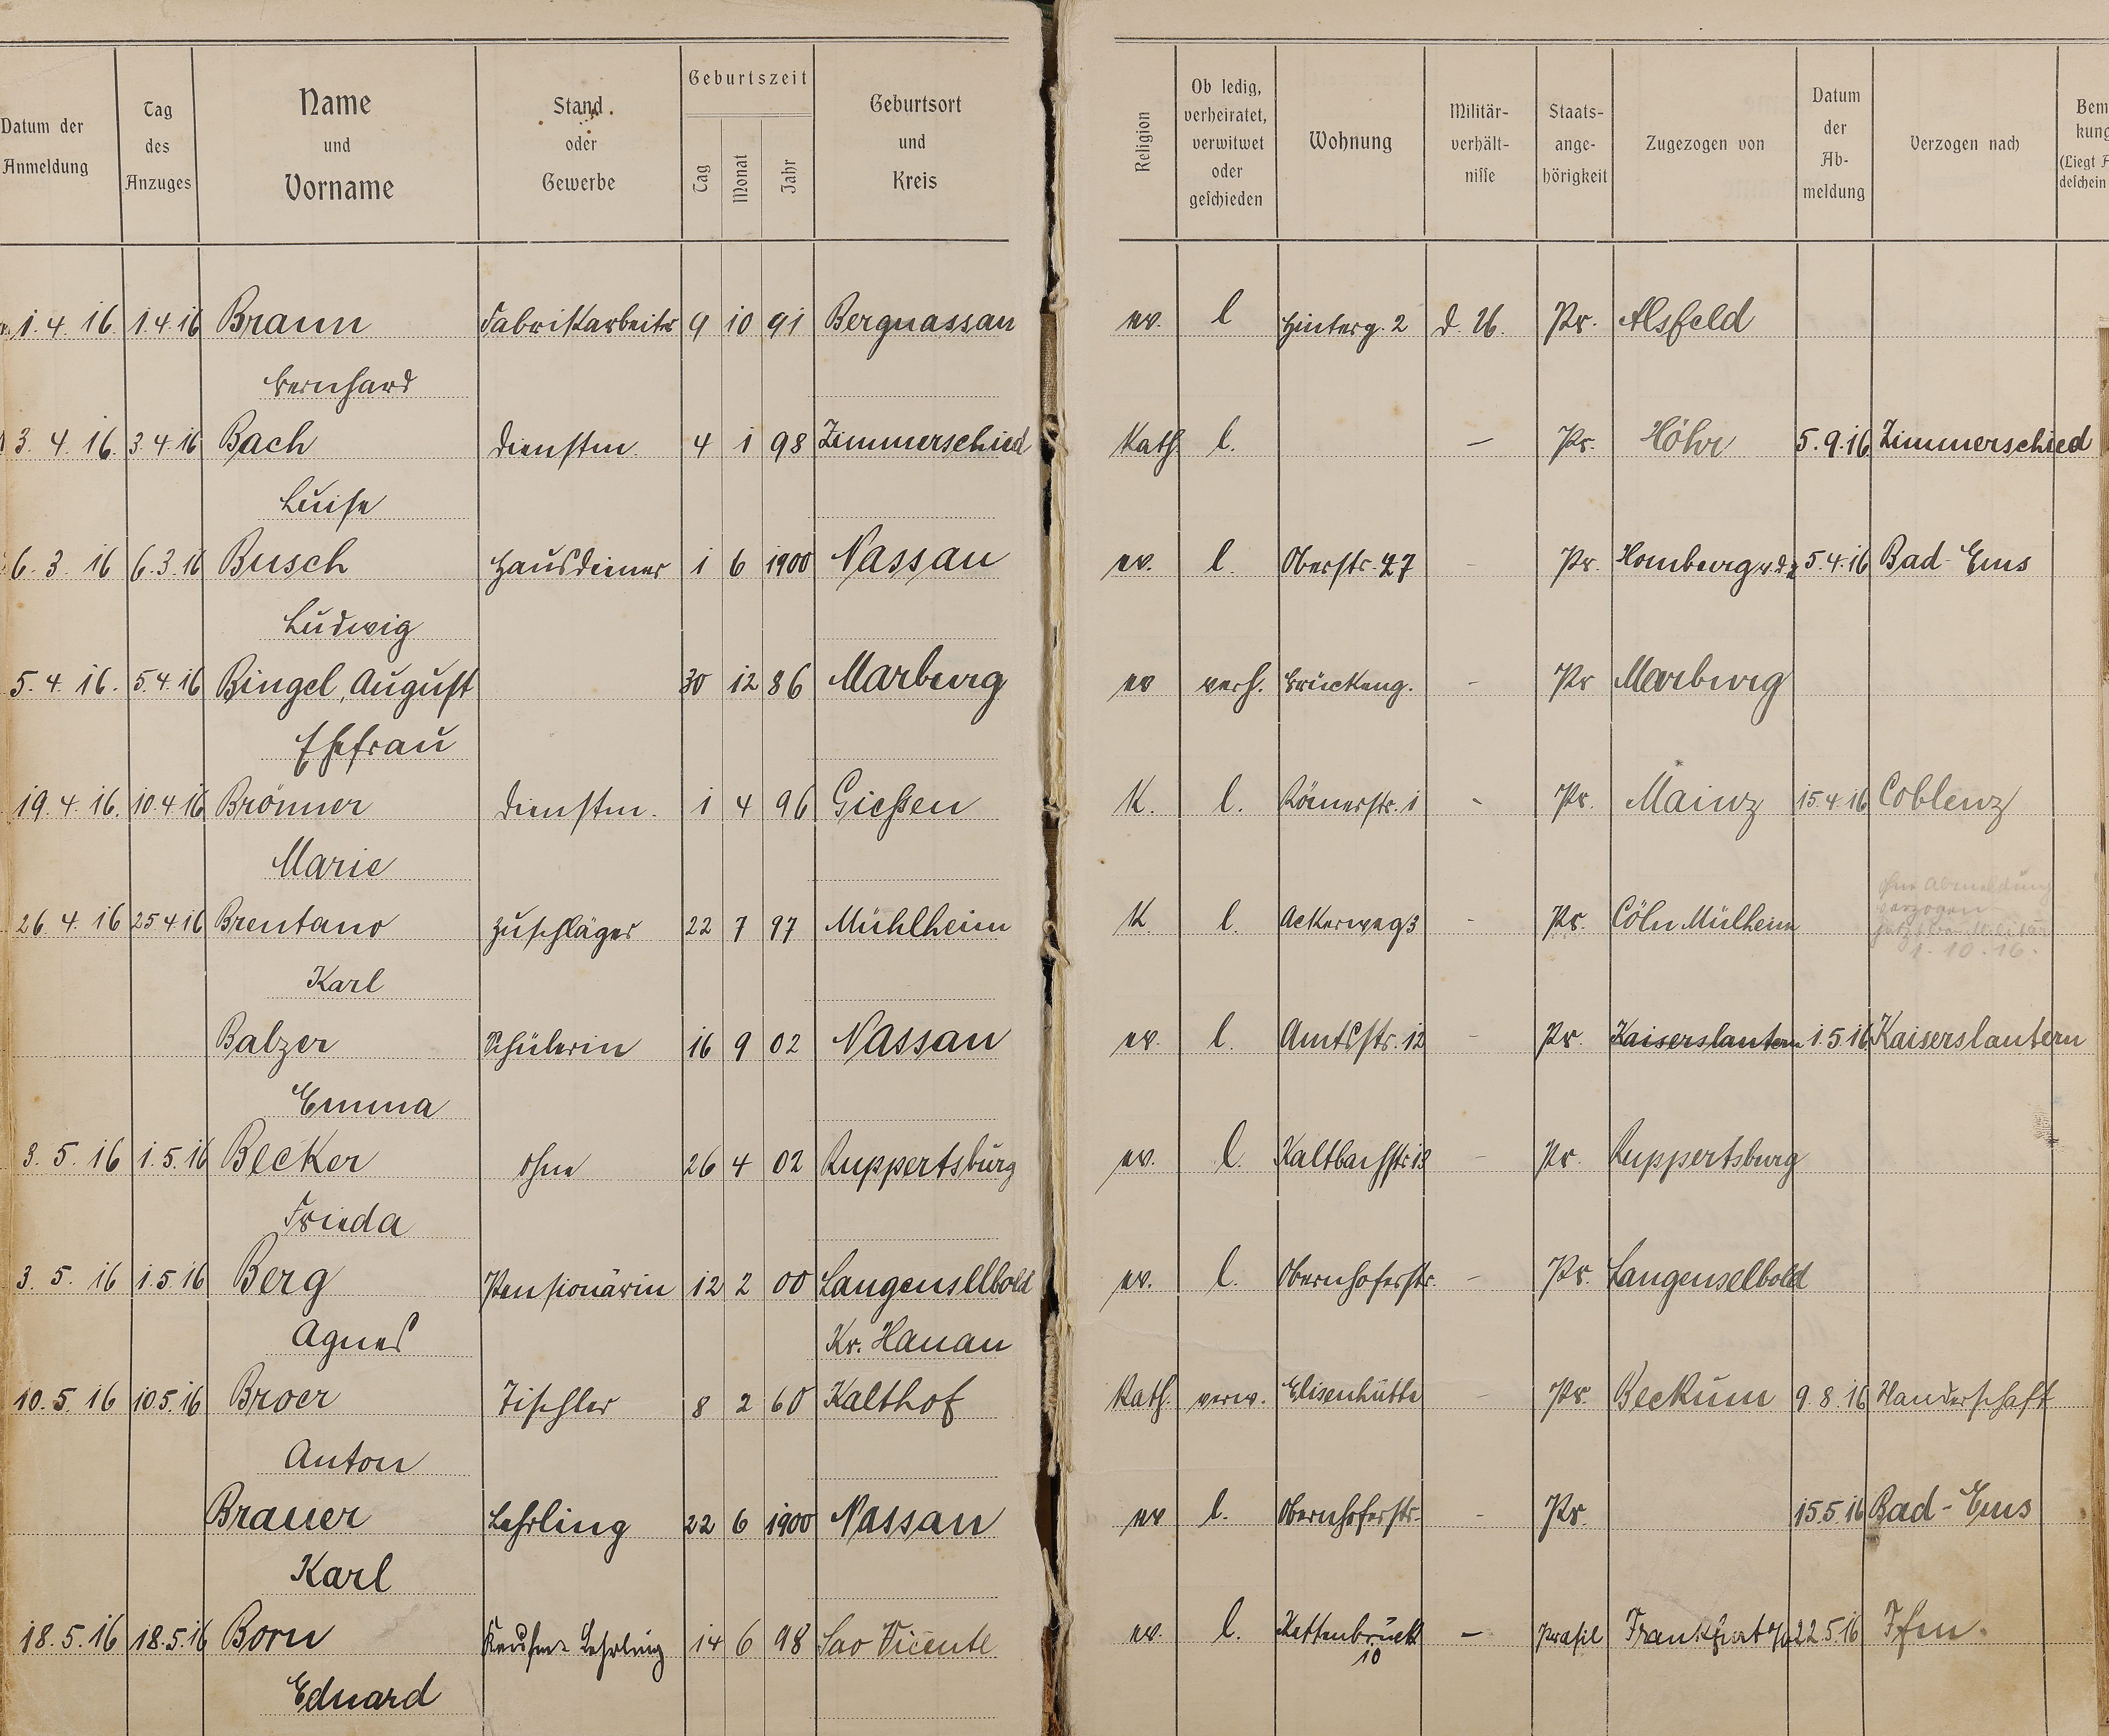 Datum der Anmeldung
Tag des Anzuges
Name und Vorname
Stand oder Gewerbe
Geburtszeit
Tag Monat Jahr
Geburtsort und Kreis
Religion
Ob ledig, verheiratet, verwitwet oder geschieden
Wohnung
Militär-verhält-nisse
Staats-ange-hörigkeit
Zugezogen von
Datum der Ab-meldung
Verzogen nach
1. 4. 16. 1.4.16 Braun Fabrikarbeiter 9 10 91 Bergnassau ev. l Hinterg. 2 d. U. Pr. Alsfeld
Bernhard
3. 4. 16. 3.4.16 Bach Dienstm. 4 1 98 Zimmerschied Kath. l. – Pr. Höhr 5.9.16. Zimmerschied
Luise
6. 3. 16 6.3.16 Busch Hausdiener 1 6 1900 Nassau ev. l. Oberstr. 27 – Pr. Homburg v.d. 5.4.16 Bad-Ems
Ludwig
5. 4. 16. 5.4.16 Bingel, August 30 12 86 Marburg ev verh. Brückeng. – Pr Marburg
Ehefrau
19. 4. 16. 10.4.16 Brönner Dienstm. 1 4 96 Giessen K. l. Römerstr. 1 - Pr. Mainz 15.4.16 Coblenz
Marie
26. 4. 16 25 4 16 Brentano Zuschläger 22 7 97 Mühlheim K. l. Ackerweg 3 - Pr. Cöln Mülheim
ohne Abmeldung
verzogen
1.10.16.
Karl
Balzer Schülerin 16 9 02 Nassau ev. l. Amtsstr. 12 – Pr. Kaiserslautern 1.5.16. Kaiserslautern
Emma
3. 5. 16 1.5.16 Becker ohne 26 4 02 Ruppertsburg ev. l. Kaltbachstr 13 – Pr. Ruppertsburg
Frieda
3. 5. 16 1.5.16 Berg Pensionärin 12 2 00 Langenselbold ev. l. Obernhoferstr. – Pr. Langenselbold
Agnes Kr. Hanau
10. 5. 16 10.5.16 Broer Tischler 8 2 60 Kalthof Kath. verw. Elisenhütte - Pr. Beckum 9.8.16 Wanderschaft
Anton
Brauer Lehrling 22 6 1900 Nassau ev l. Obernhoferstr. - Pr. 15.5.16 Bad-Ems
Karl
18. 5. 16 18.5.16 Born Kaufm. Lehrling 14 6 98 Sao Vicente ev. l. Kettenbrück – Brasil Frankfurt 22.5.16
10
Eduard